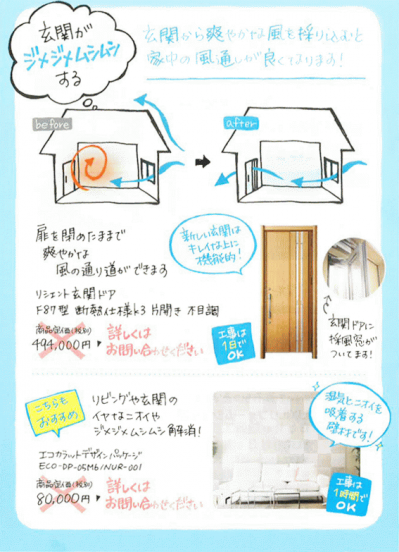 玄関が
ジメジメムシムシ
する
玄関から爽やかな風を採り込むと
家中の風通しが良くなります!
before
after
扉を閉めたままで
爽やかな
風の通り道ができます
新しい玄関は
キレイな上に
機能的!
リシェント玄関ドア
F87型 断熱仕様k3 片開き 木目調
商品定価(税別)
494,000円
詳しくは
お問い合わせください
工事は
1日で
OK
玄関ドアに
採風窓が
ついてます!
こちらも
おすすめ
リビングや玄関の
イヤなニオイや
ジメジメムシムシ解消!
湿気とニオイを
吸着する
壁材です!
エコカラットデザインパッケージ
ECO-DP-05M6/NUR-001
商品定価(税別)
80,000円
詳しくは
お問い合わせください
工事は
1時間で
OK